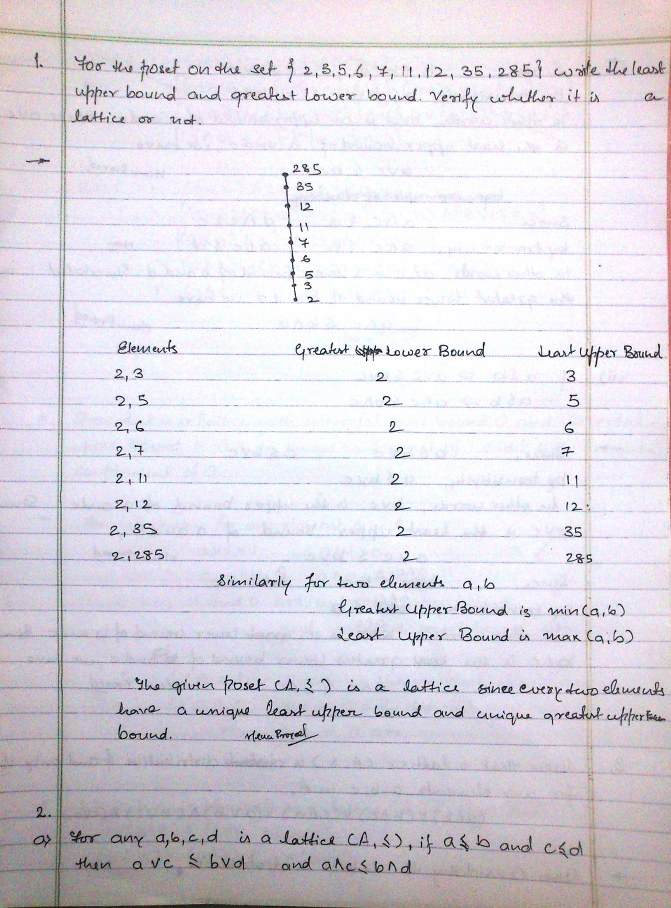 1. For the poset on the set { 2,3,5,6, 7, 11, 12, 35, 285} write the least
upper bound and greatest Lower bound. Verify whether it is a
lattice or not.
→
285
35
12
11
7
6
5
3
2
Elements Greatest Lower Bound Least Upper Bound
2,3 2 3
2,5 2 5
2,6 2 6
2,7 2 7
2,11 2 11
2,12 2 12
2,35 2 35
2,285 2 285
Similarly for two elements a,b
Greatest Upper Bound is min(a,b)
Least Upper Bound is max (a,b)
The given poset (A,≤) is a lattice since every two elements
have a unique least upper bound and unique greatest upper
bound. Hence Proved
2.
a) For any a,b,c,d is a lattice (A,≤), if a≤b and c≤d
then a∨c ≤ b∨d and a∧c≤b∧d